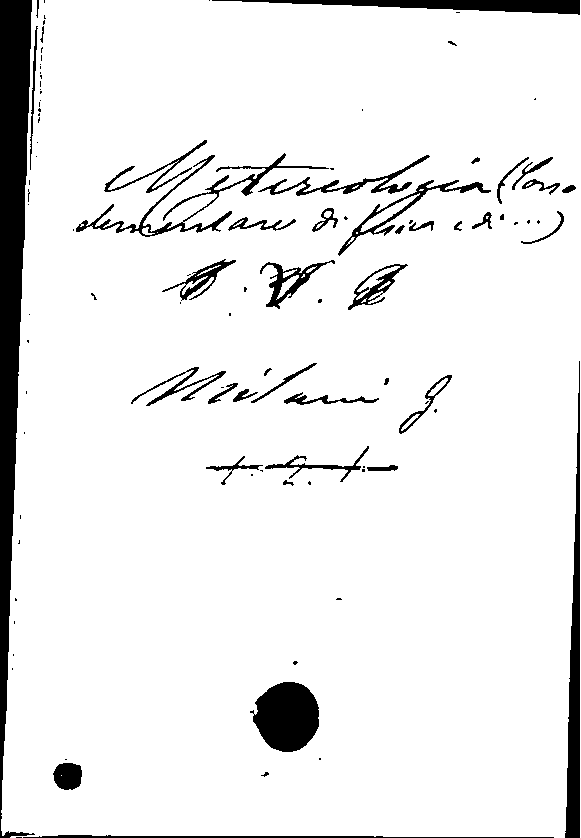 Metereologia (Corso
elementare di fisica e di ...)
Milani G.